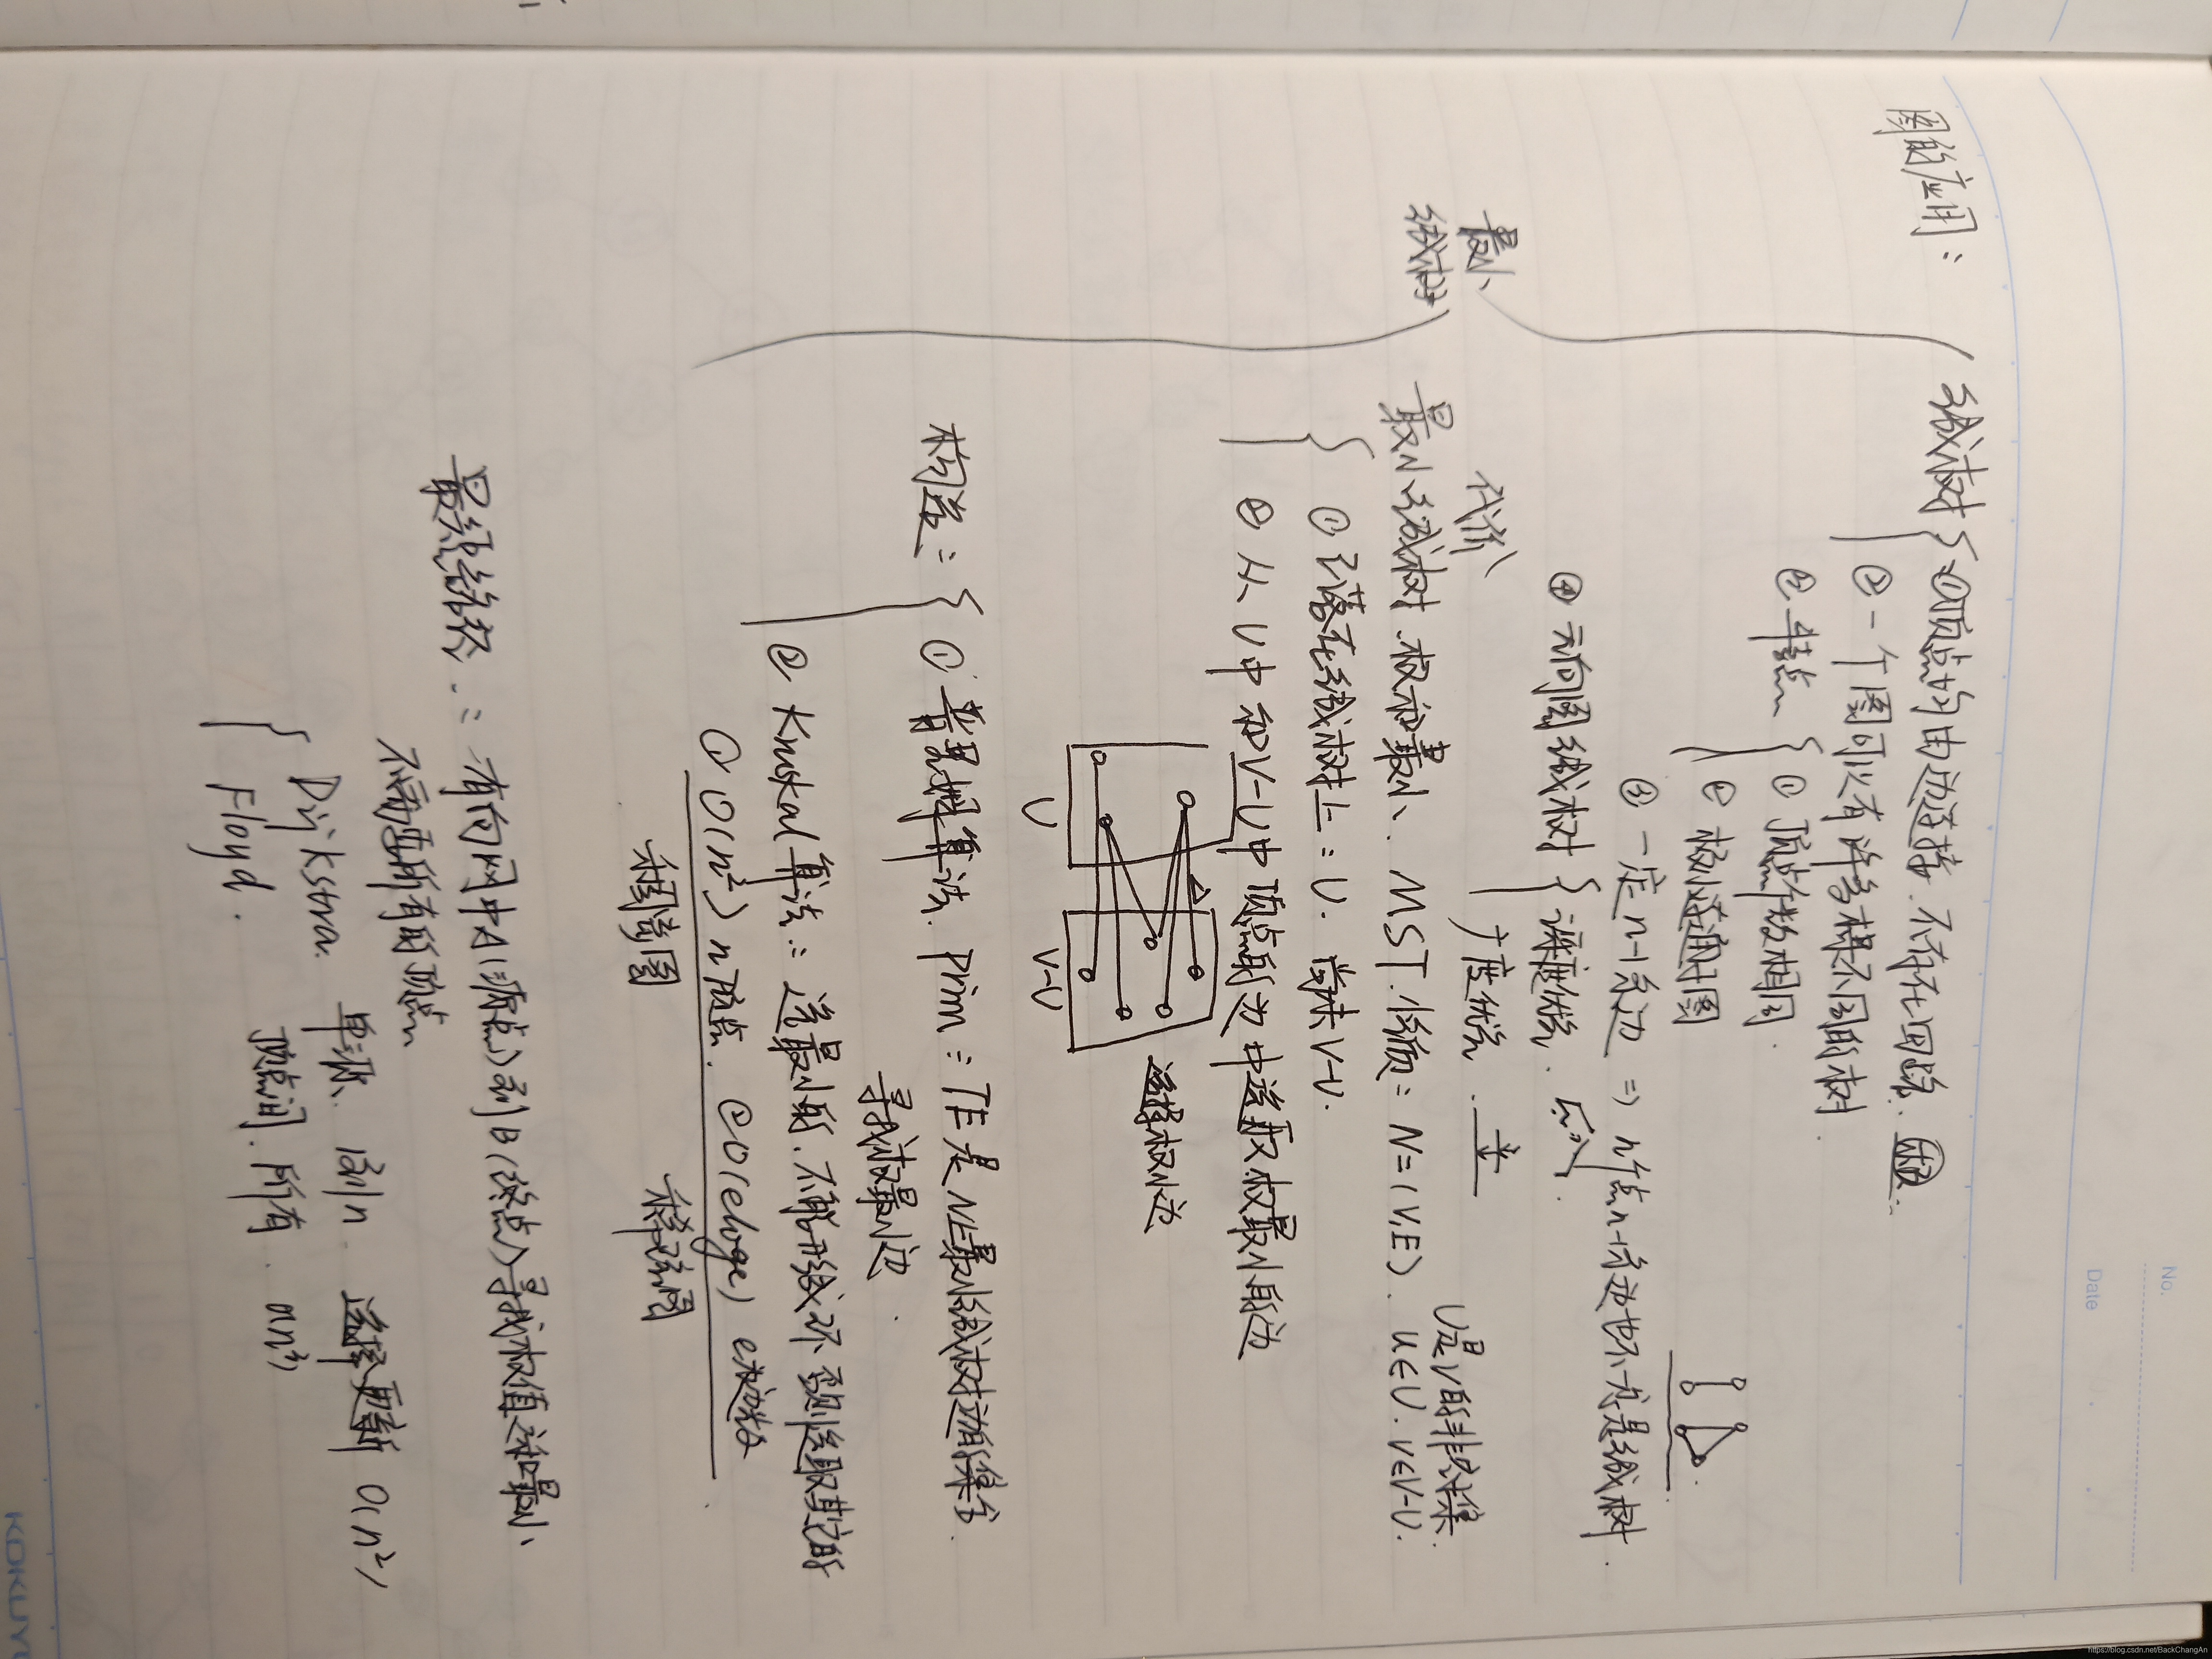 No.
Date
图的应用：
最小
生成树
生成树 ①顶点均由边连接.不存在回路.
② 一个图可以有许多棵不同的树
③ 特点 ① 顶点个数相同.
② 极小连通图
③ 一定n-1条边 ⇒ n个点n-1条边也不一定是生成树.
④ 无向图生成树 深度优先.
广度优先.
代价
最小生成树.权和最小. MST.性质：N=(V,E). u∈U. v∈V-U.
U是V的非空子集
① 已落在生成树上：U. 尚未V-U.
② 从U中和V-U中顶点的边中选取权最小的边
U
V-U
选择权小边
构造： ① 普里姆算法. Prim：TE是N上最小生成树边的集合.
寻找权最小边.
② Kruskal算法：选最小的.不能形成环 否则选取其它的
① O(n²) n顶点. ② O(eloge) e边数.
稠密图
稀疏图
最短路径.：有向网中A(源点)到B(终点)寻找权值之和最小
不需要所有的顶点
Dijkstra. 单源. 1到n 选择更新 O(n²)
Floyd. 顶点间.所有. O(n³)
KOKUYO
https://blog.csdn.net/BackChangAn